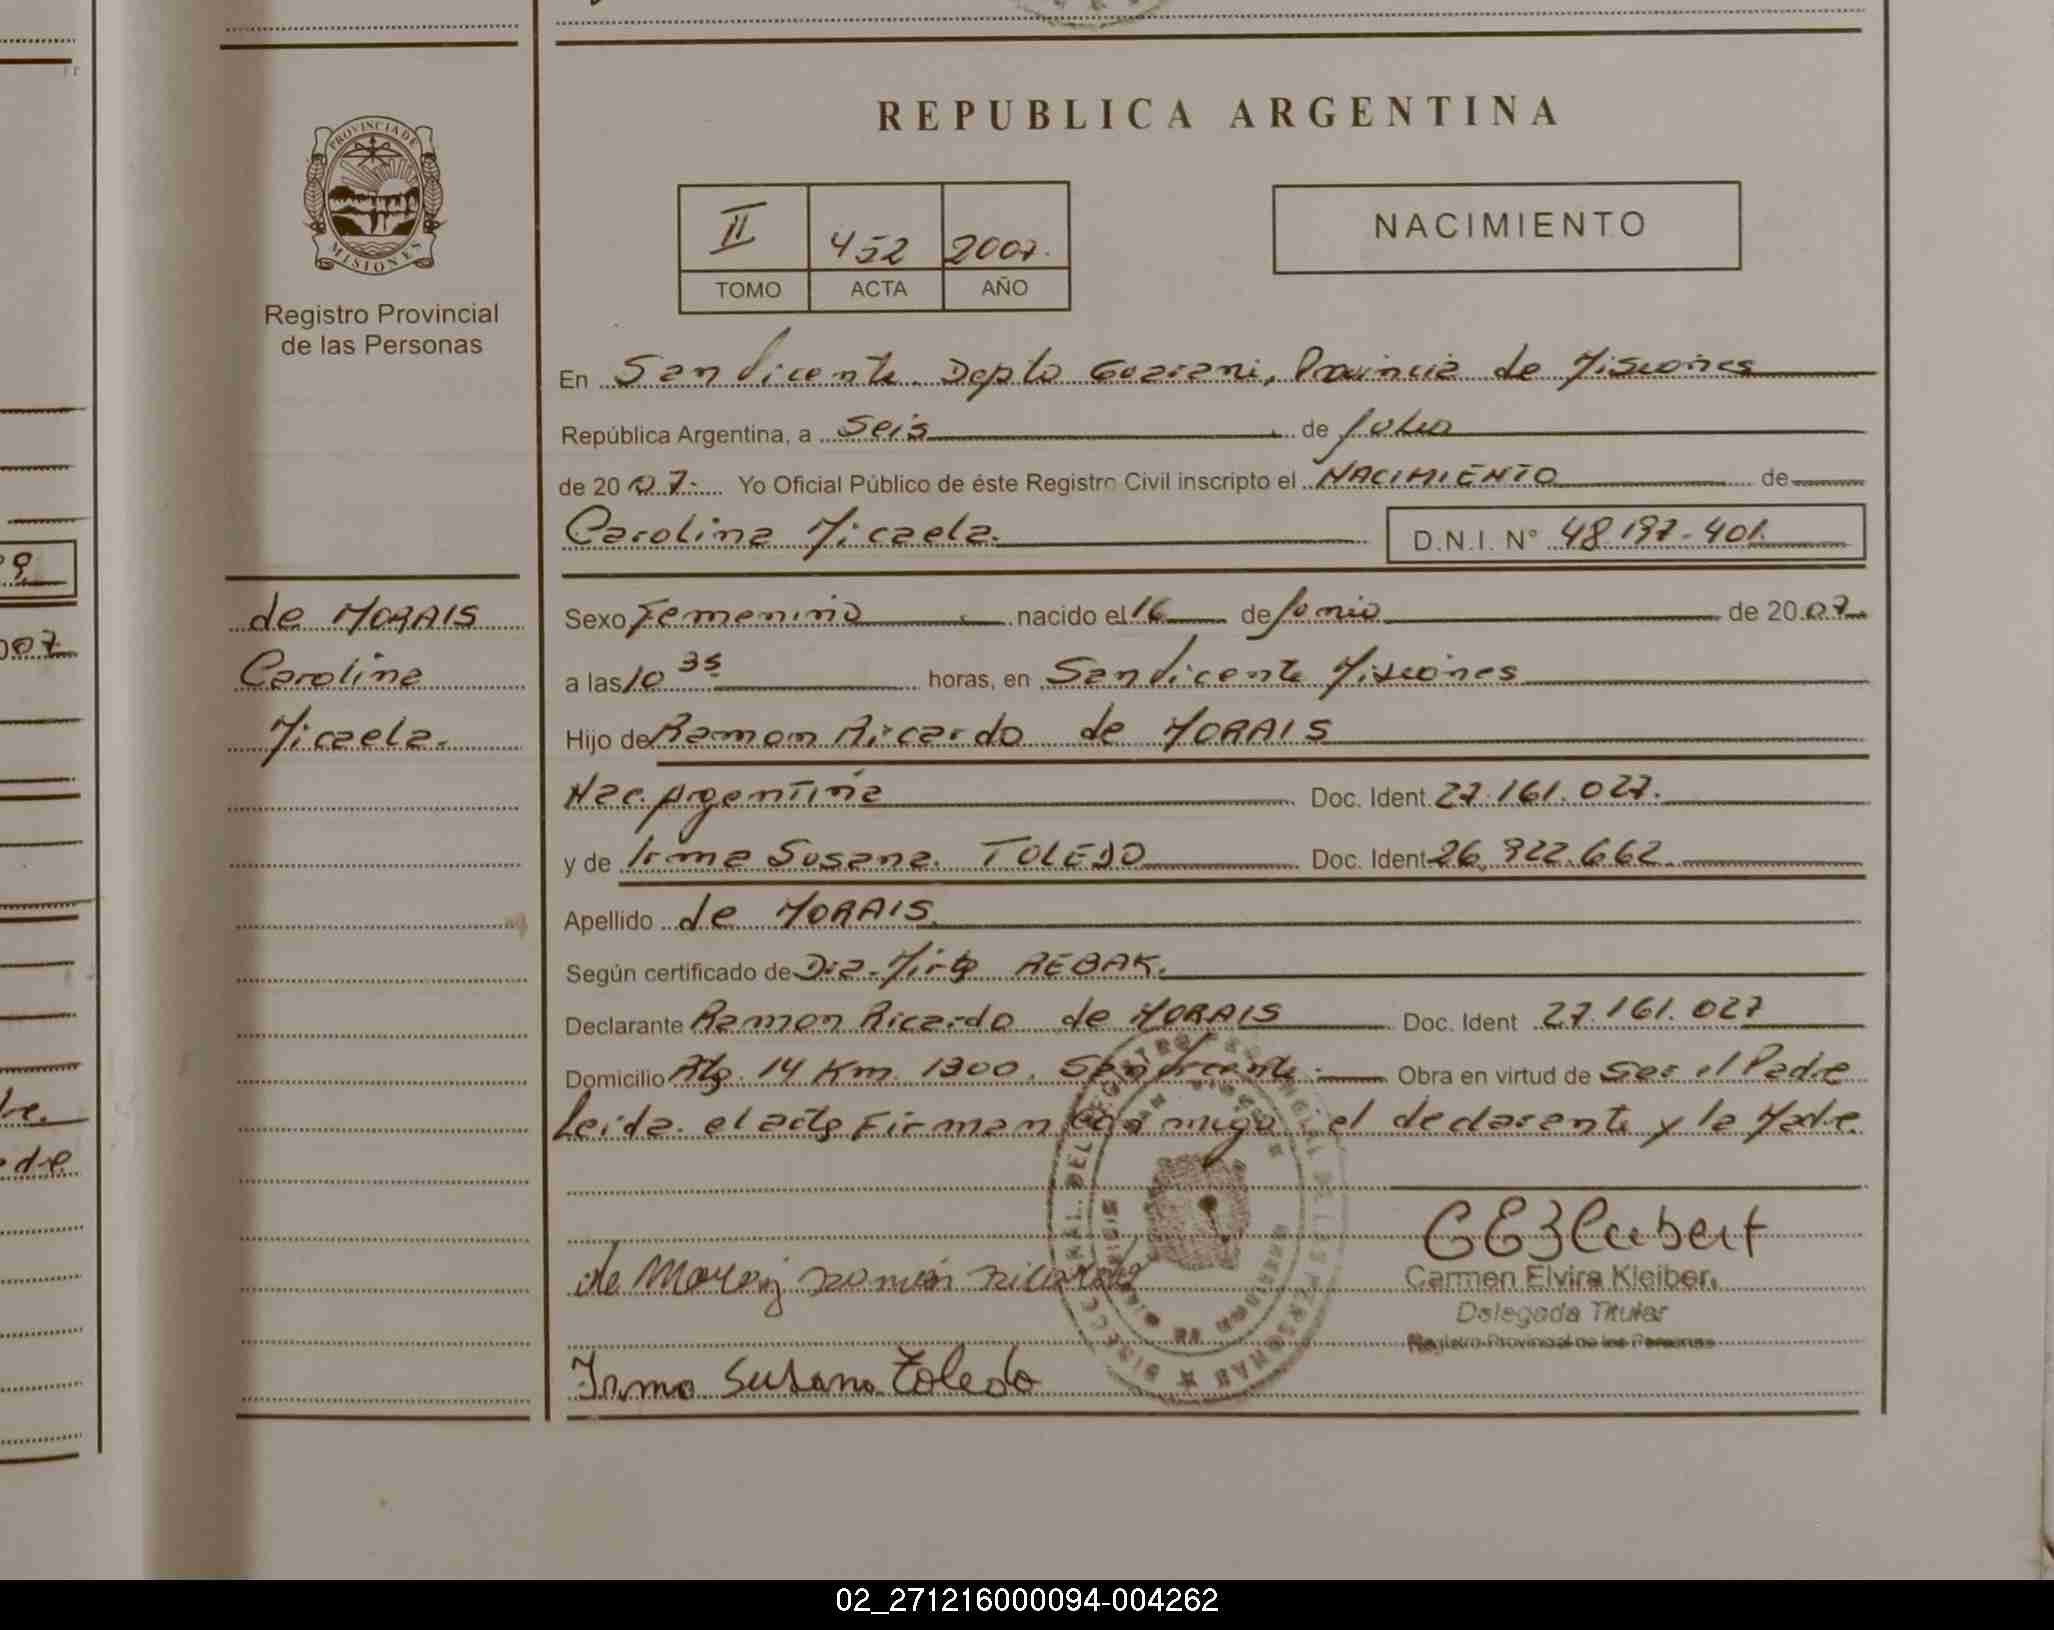 REPUBLICA ARGENTINA
PROVINCIA DE
MISIONES
Registro Provincial
de las Personas
II 452 2007.
TOMO ACTA AÑO
NACIMIENTO
En San Vicente Depto Guarani, Provincia de Misiones
República Argentina, a Seis de Julio
de 2007.- Yo Oficial Público de éste Registro Civil inscripto el NACIMIENTO de
Carolina Micaela. D.N.I. N° 48 197-401.
de MORAIS
Carolina
Micaela.
Sexo Femenino nacido el 16 de Junio de 2007.
a las 10 35 horas, en San Vicente Misiones
Hijo de Ramon Ricardo de MORAIS
Nac. Argentina Doc. Ident. 27.161.027.
y de Irma Susana. TOLEDO Doc. Ident 26.922.662.
Apellido de MORAIS.
Según certificado de Dra. Mirta REBAK.
Declarante Ramon Ricardo de MORAIS Doc. Ident 27.161.027
Domicilio Rta. 14 Km. 1300. San Vicente.- Obra en virtud de Ser el Padre
Leida. el acta Firman Con migo el declarante y la Madre
de Morais ramón ricardo
Carmen Elvira Kleiber.
Delegada Titular
Registro Provincial de las Personas
Irma Susana Toledo
02_271216000094-004262